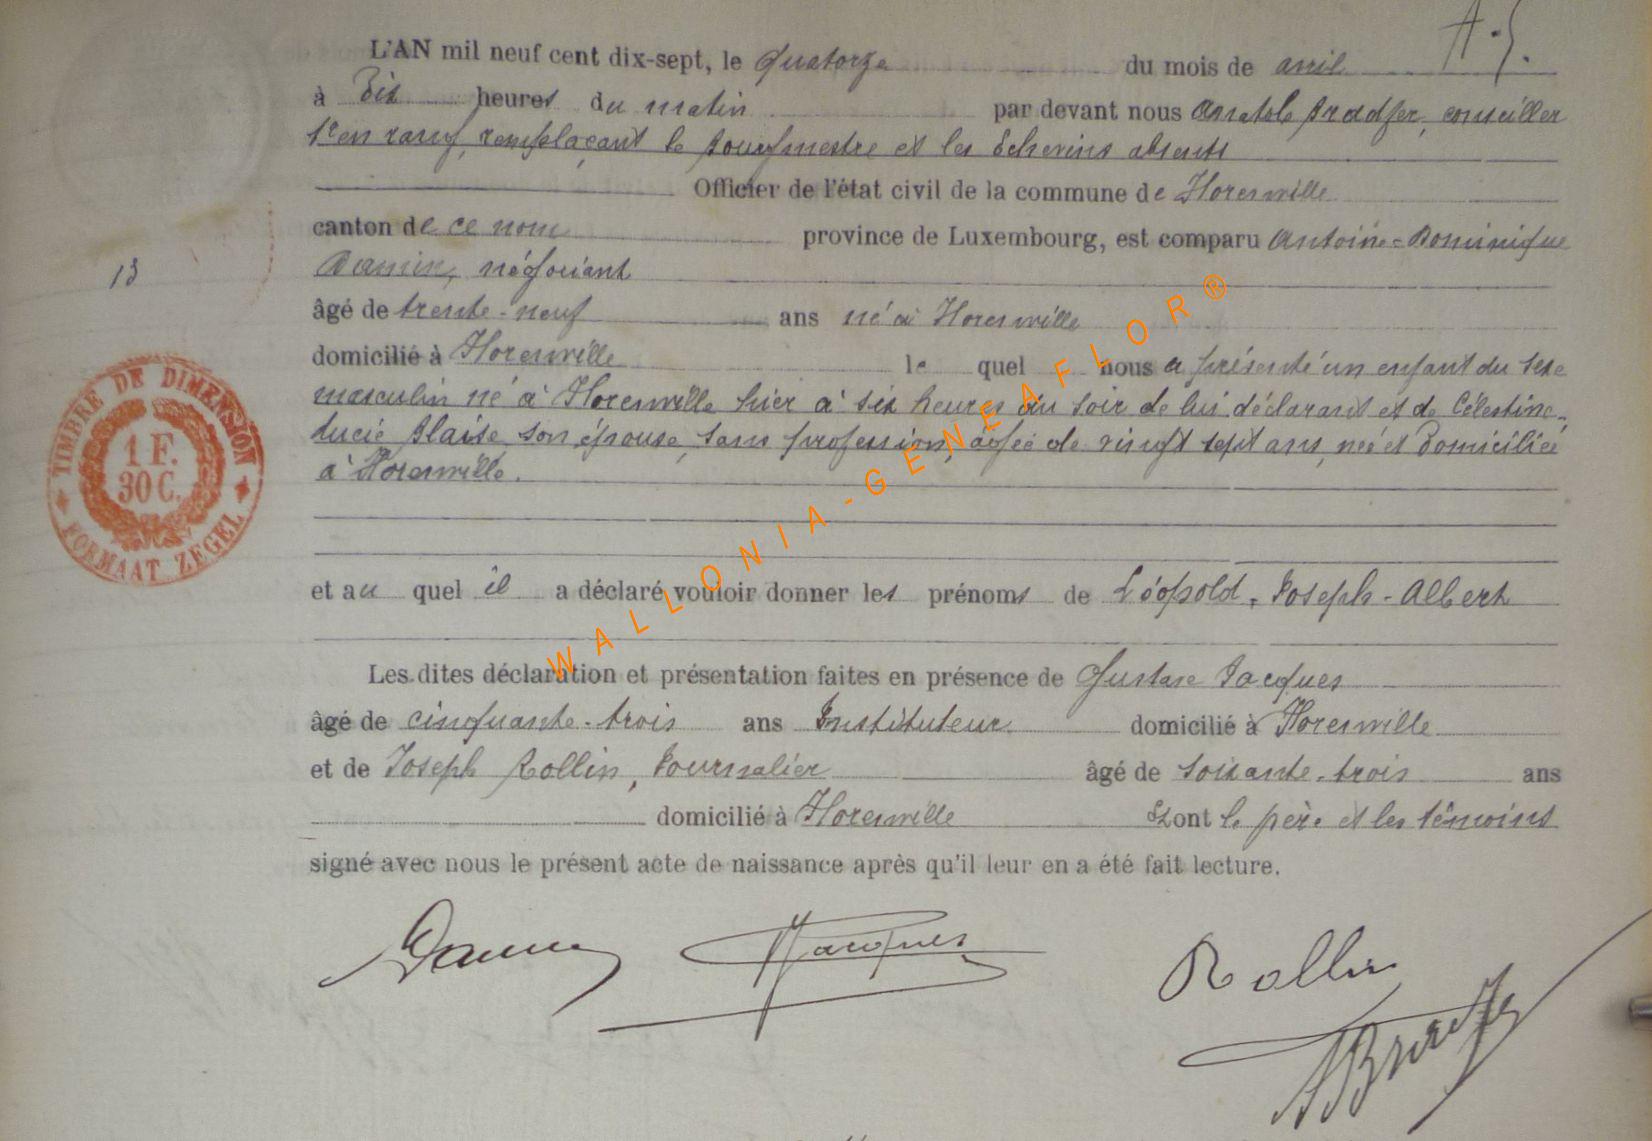 A.S.
L'AN mil neuf cent dix-sept, le Quatorze du mois de avril
à Dix heures du matin par devant nous Anatole Bradfer, conseiller
1er en rang, remplaçant le Bourgmestre et les Echevins absents
Officier de l'état civil de la commune de Florenville
canton de ce nom province de Luxembourg, est comparu Antoine-Dominique
négociant
13
âgé de trente-neuf ans né à Florenville
domicilié à Florenville lequel nous a présenté un enfant du sexe
masculin né à Florenville hier à six heures du soir de lui déclarant et de Célestine-
Lucie Blaise, son épouse, sans profession, âgée de vingt sept ans, née et Domiciliée
à Florenville.
TIMBRE DE DIMENSION
1 F.
30 C.
FORMAAT ZEGEL
et au quel il a déclaré vouloir donner les prénoms de Léopold-Joseph-Albert
Les dites déclaration et présentation faites en présence de Gustave Jacques
âgé de cinquante-trois ans Instituteur domicilié à Florenville
et de Joseph Rollin, Journalier âgé de soixante-trois ans
domicilié à Florenville Et ont le père et les témoins
signé avec nous le présent acte de naissance après qu'il leur en a été fait lecture.
Jacques Rollin
WALLONIA-GENEAFLOR®